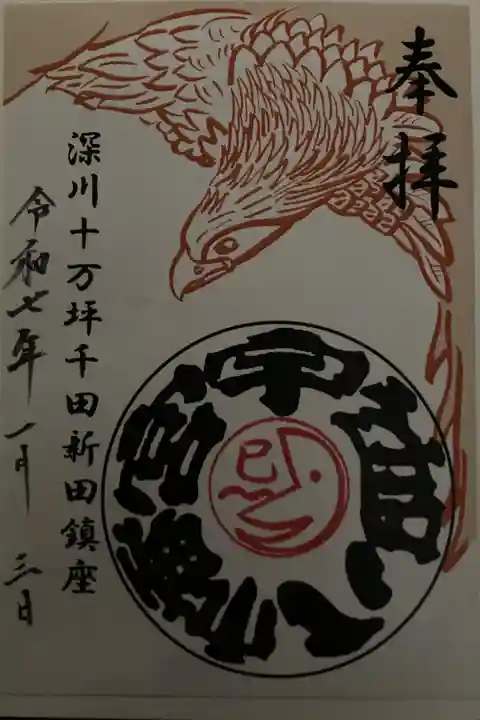 奉拝
深川十万坪千田新田鎮座
宇迦八幡宮
巳
令和七年一月三日